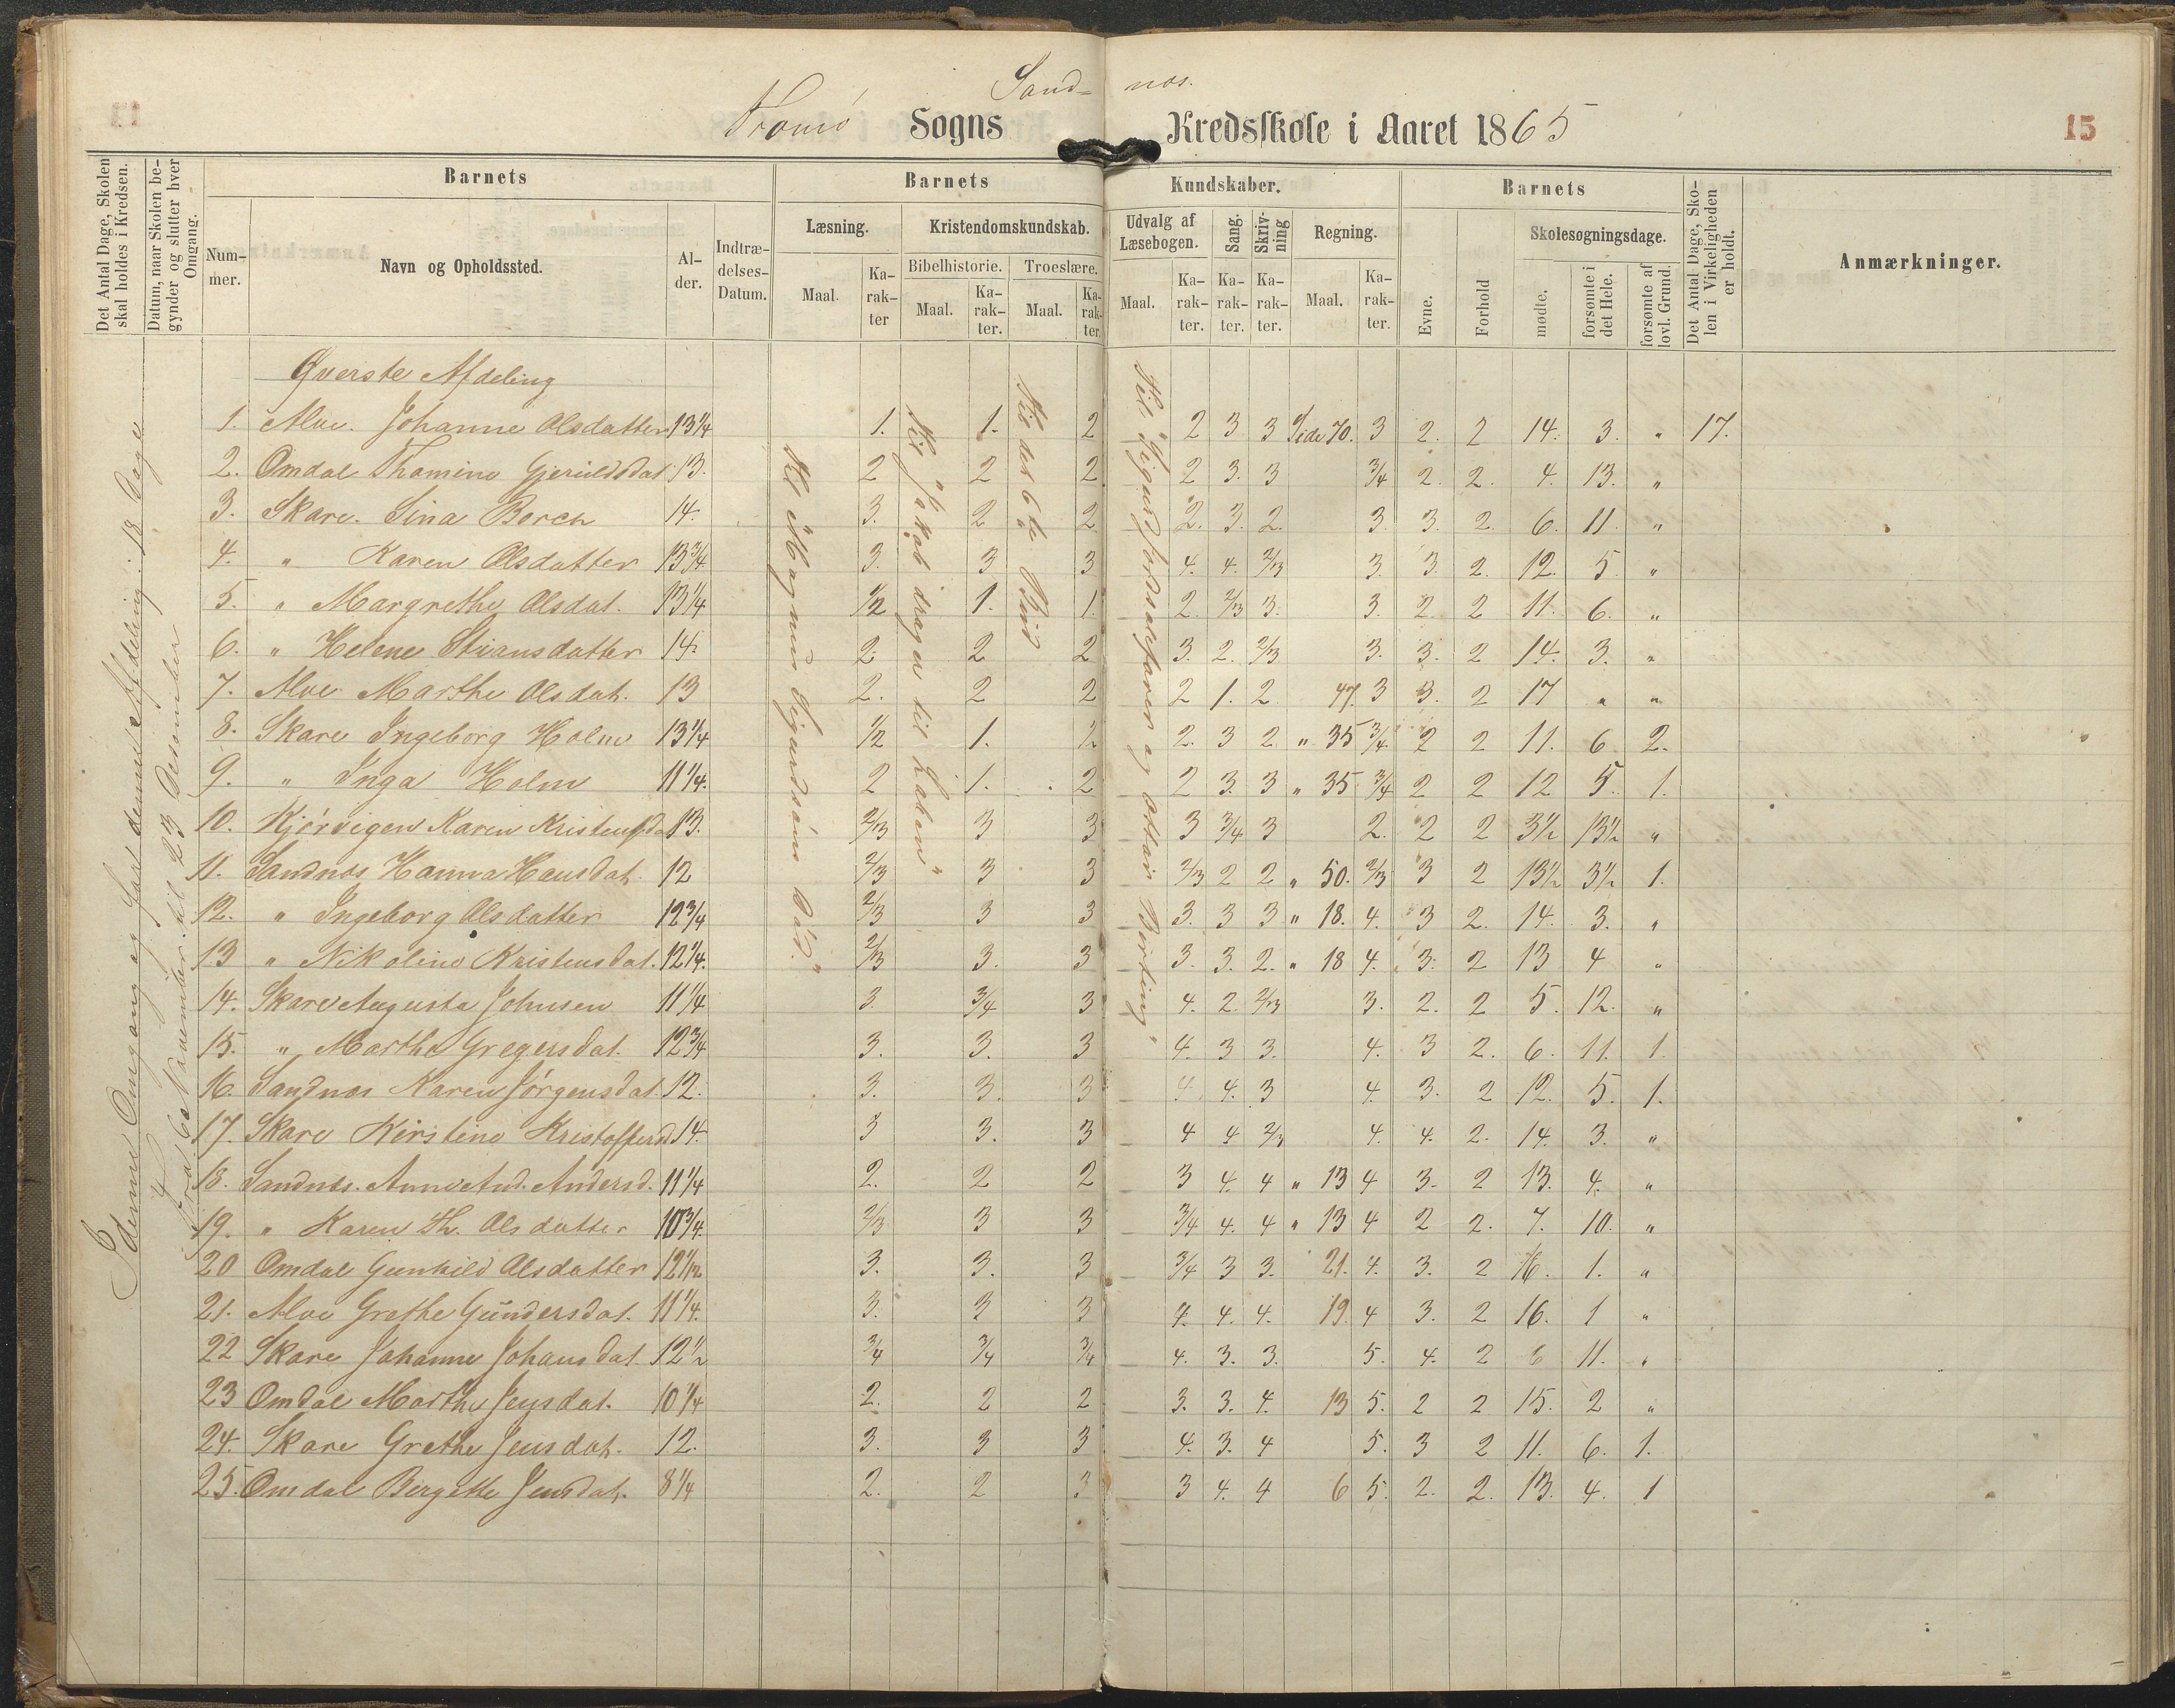 Sand- næs.
Tromø Sogns Kredsskole i Aaret 1865
15
Det Antal Dage, Skolen skal holdes i Kredsen.
Datum, naar Skolen begynder og slutter hver Omgang.
Barnets
Barnets
Kundskaber.
Barnets
Det Antal Dage, Skolen i Virkeligheden er holdt.
Anmærkninger.
Nummer.
Navn og Opholdssted.
Alder.
Indtrædelses-Datum.
Læsning.
Kristendomskundskab.
Udvalg af Læsebogen.
Sang.
Skrivning
Regning.
Evne.
Forhold
Skolesøgningsdage.
Bibelhistorie.
Troeslære.
Maal.
Karakter
Maal.
Karakter.
Maal.
Karakter.
Maal.
Karakter.
Karakter.
Karakter.
Maal.
Karakter.
mødte.
forsømte i det Hele.
forsømte af lovl. Grund.
I denne Omgang og for denne Afdeling: 18 Dage
Fra 6te November til 23 December
Til Magnus Sigurdsøns Død."
Til "Jakob drager til Laban"
Til det 6te Bud
Til "Sigurd Jorsalfarer og Ottar Birting"
Øverste Afdeling
1. Alve. Johanne Olsdatter 13 1/4 1. 1. 2 2 3 3 Side 70. 3 2. 2 14. 3. " 17.
2. Omdal Thomine Gjeruldsdat 13. 2 2 2 2 3. 3 3/4 2. 2. 4. 13. "
3. Skare. Sina Borch 14. 3. 2 2 2. 3. 2. 3. 3. 2. 6. 11. "
4. " Karen Olsdatter 13 3/4 3. 3 3 4. 4. 2/3 3. 3. 2. 12. 5. "
5. " Margrethe Olsdat. 13 1/4 1/2 1. 1. 2. 2/3 3. 3. 2. 2 11. 6. "
6. " Helene Stiansdatter 14. 2. 2 2 3. 2. 2/3 3. 3. 2 14. 3. "
7. Alve Marthe Olsdat. 13 2. 2 2 2 1. 2. 47. 3 3. 2 17 " "
8. Skare Ingeborg Holm 13 1/4 1/2 1. 2 2. 3 2 " 35 3/4. 2 2 11. 6 2.
9. " Inga Holm 11 1/4. 2 1. 2 2 3. 3 " 35 3/4 2 2 12 5. 1.
10. Kjørvigen Karen Kristensda 13. 2/3 3 3 3 3/4 3 2. 2 2 3 1/2 13 1/2 "
11. Sandnæs Hanna Hansdat. 12 2/3 3 3 2/3 2 2 " 50. 2/3 3 2 13 1/2 3 1/2 1.
12. " Ingeborg Olsdatter 12 3/4 2/3 3 3 3. 3 3 " 18. 4. 3 2. 14. 3. "
13 " Nikoline Kristensdat. 12 1/4. 2/3 3. 3 3. 3. 2. " 18 4. 3. 2 13 4 "
14. Skare Augusta Johnsen 11 1/4 3. 3/4 3 4. 2. 2/3 3. 2. 2 5. 12. "
15. " Marthe Gregersdat. 12 3/4 3. 3. 3 4. 3 3. 4. 3 2. 6. 11. 1.
16. Sandnæs Karen Jørgensdat. 12. 3. 3. 3 4. 4. 3 4. 3. 2 12. 5. 1.
17. Skare Kirstine Kristoffersd 14. 3 3. 3 4 4 2/3 4. 4. 2. 14. 3. "
18. Sandnæs. Anne And. Andersd. 11 1/4 2. 2 2 3 4. 4 " 13 4 3. 2 13. 4. "
19. " Karen Th. Olsdatter 10 3/4. 2/3 3 3 3/4 4. 4 " 13 4 2 2. 7. 10. "
20 Omdal Gunhild Olsdatter 12 1/2 3. 3. 3 3/4 3 3. 21. 4. 3. 2 16. 1. "
21. Alve Grethe Gundersdat. 11 1/4. 3. 3 3 4. 4. 4. 19. 4 3. 2 16. 1 "
22 Skare Johanne Johansdat. 12 1/2 3/4 3/4 3/4 4. 3. 3. 5. 4. 2 6 11. "
23 Omdal Marthe Jensdat. 10 1/4 2. 2 2 3. 3. 4. 13 5. 2 2 15. 2 "
24. Skare Grethe Jensdat. 12. 3. 3 3 4. 3. 4 5. 3 2 11. 6. 1.
25. Omdal Bergitte Jensdat. 8 1/4 2. 2 3 3 4. 4 6 5. 2. 2. 13. 4. 1